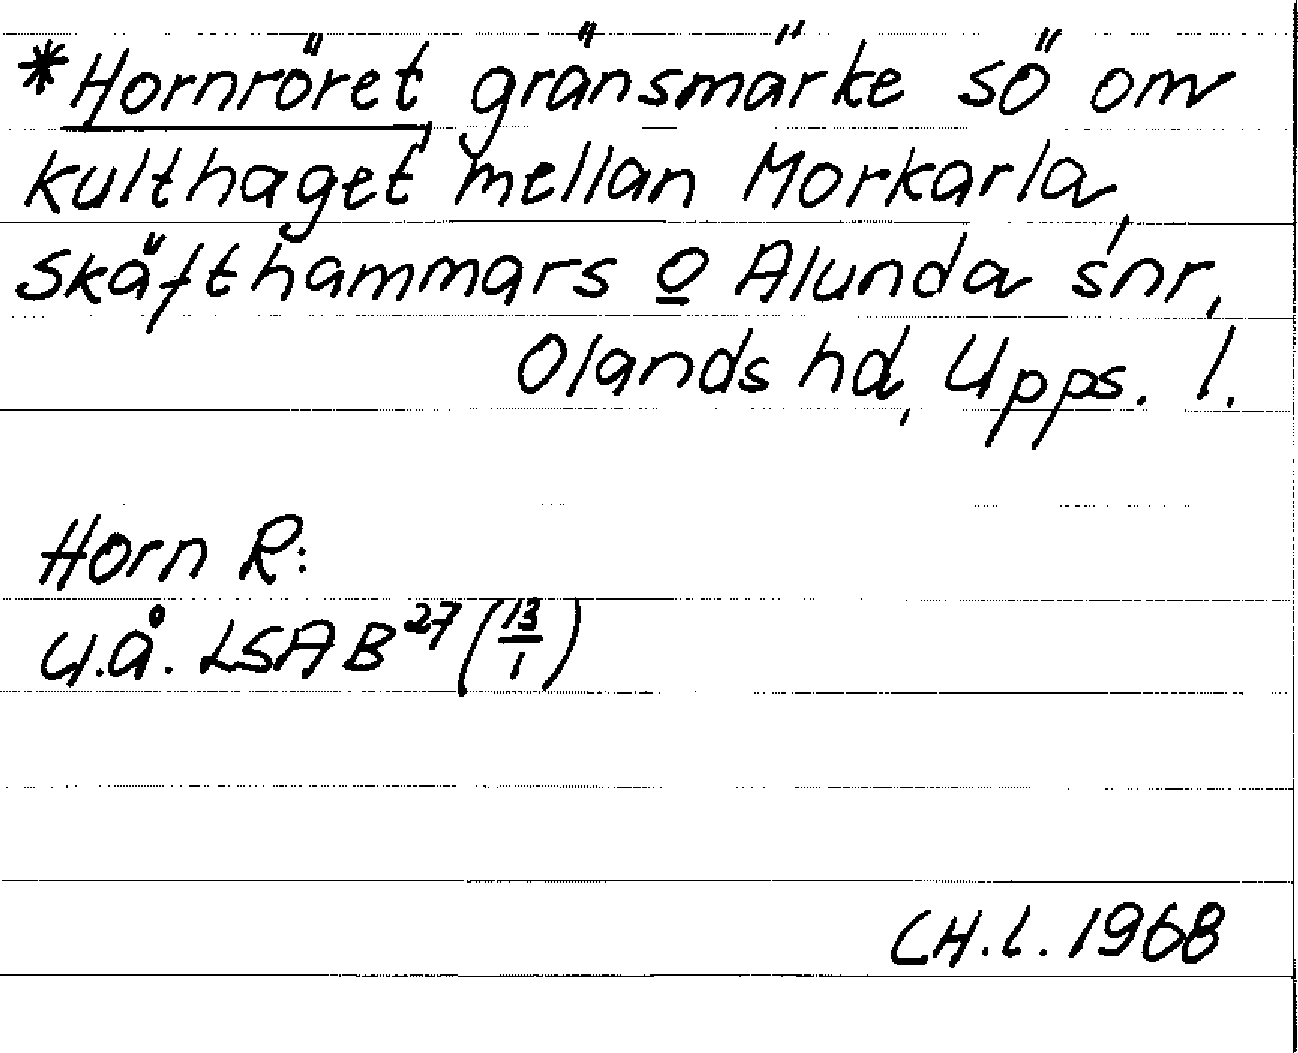 *Hornröret, gränsmärke sö om
kulthaget mellan Morkarla,
Skäfthammars o Alunda snr,
Olands hd, Upps. l.
Horn R:
u.å. LSA B27 (13/1)
CH.L. 1968